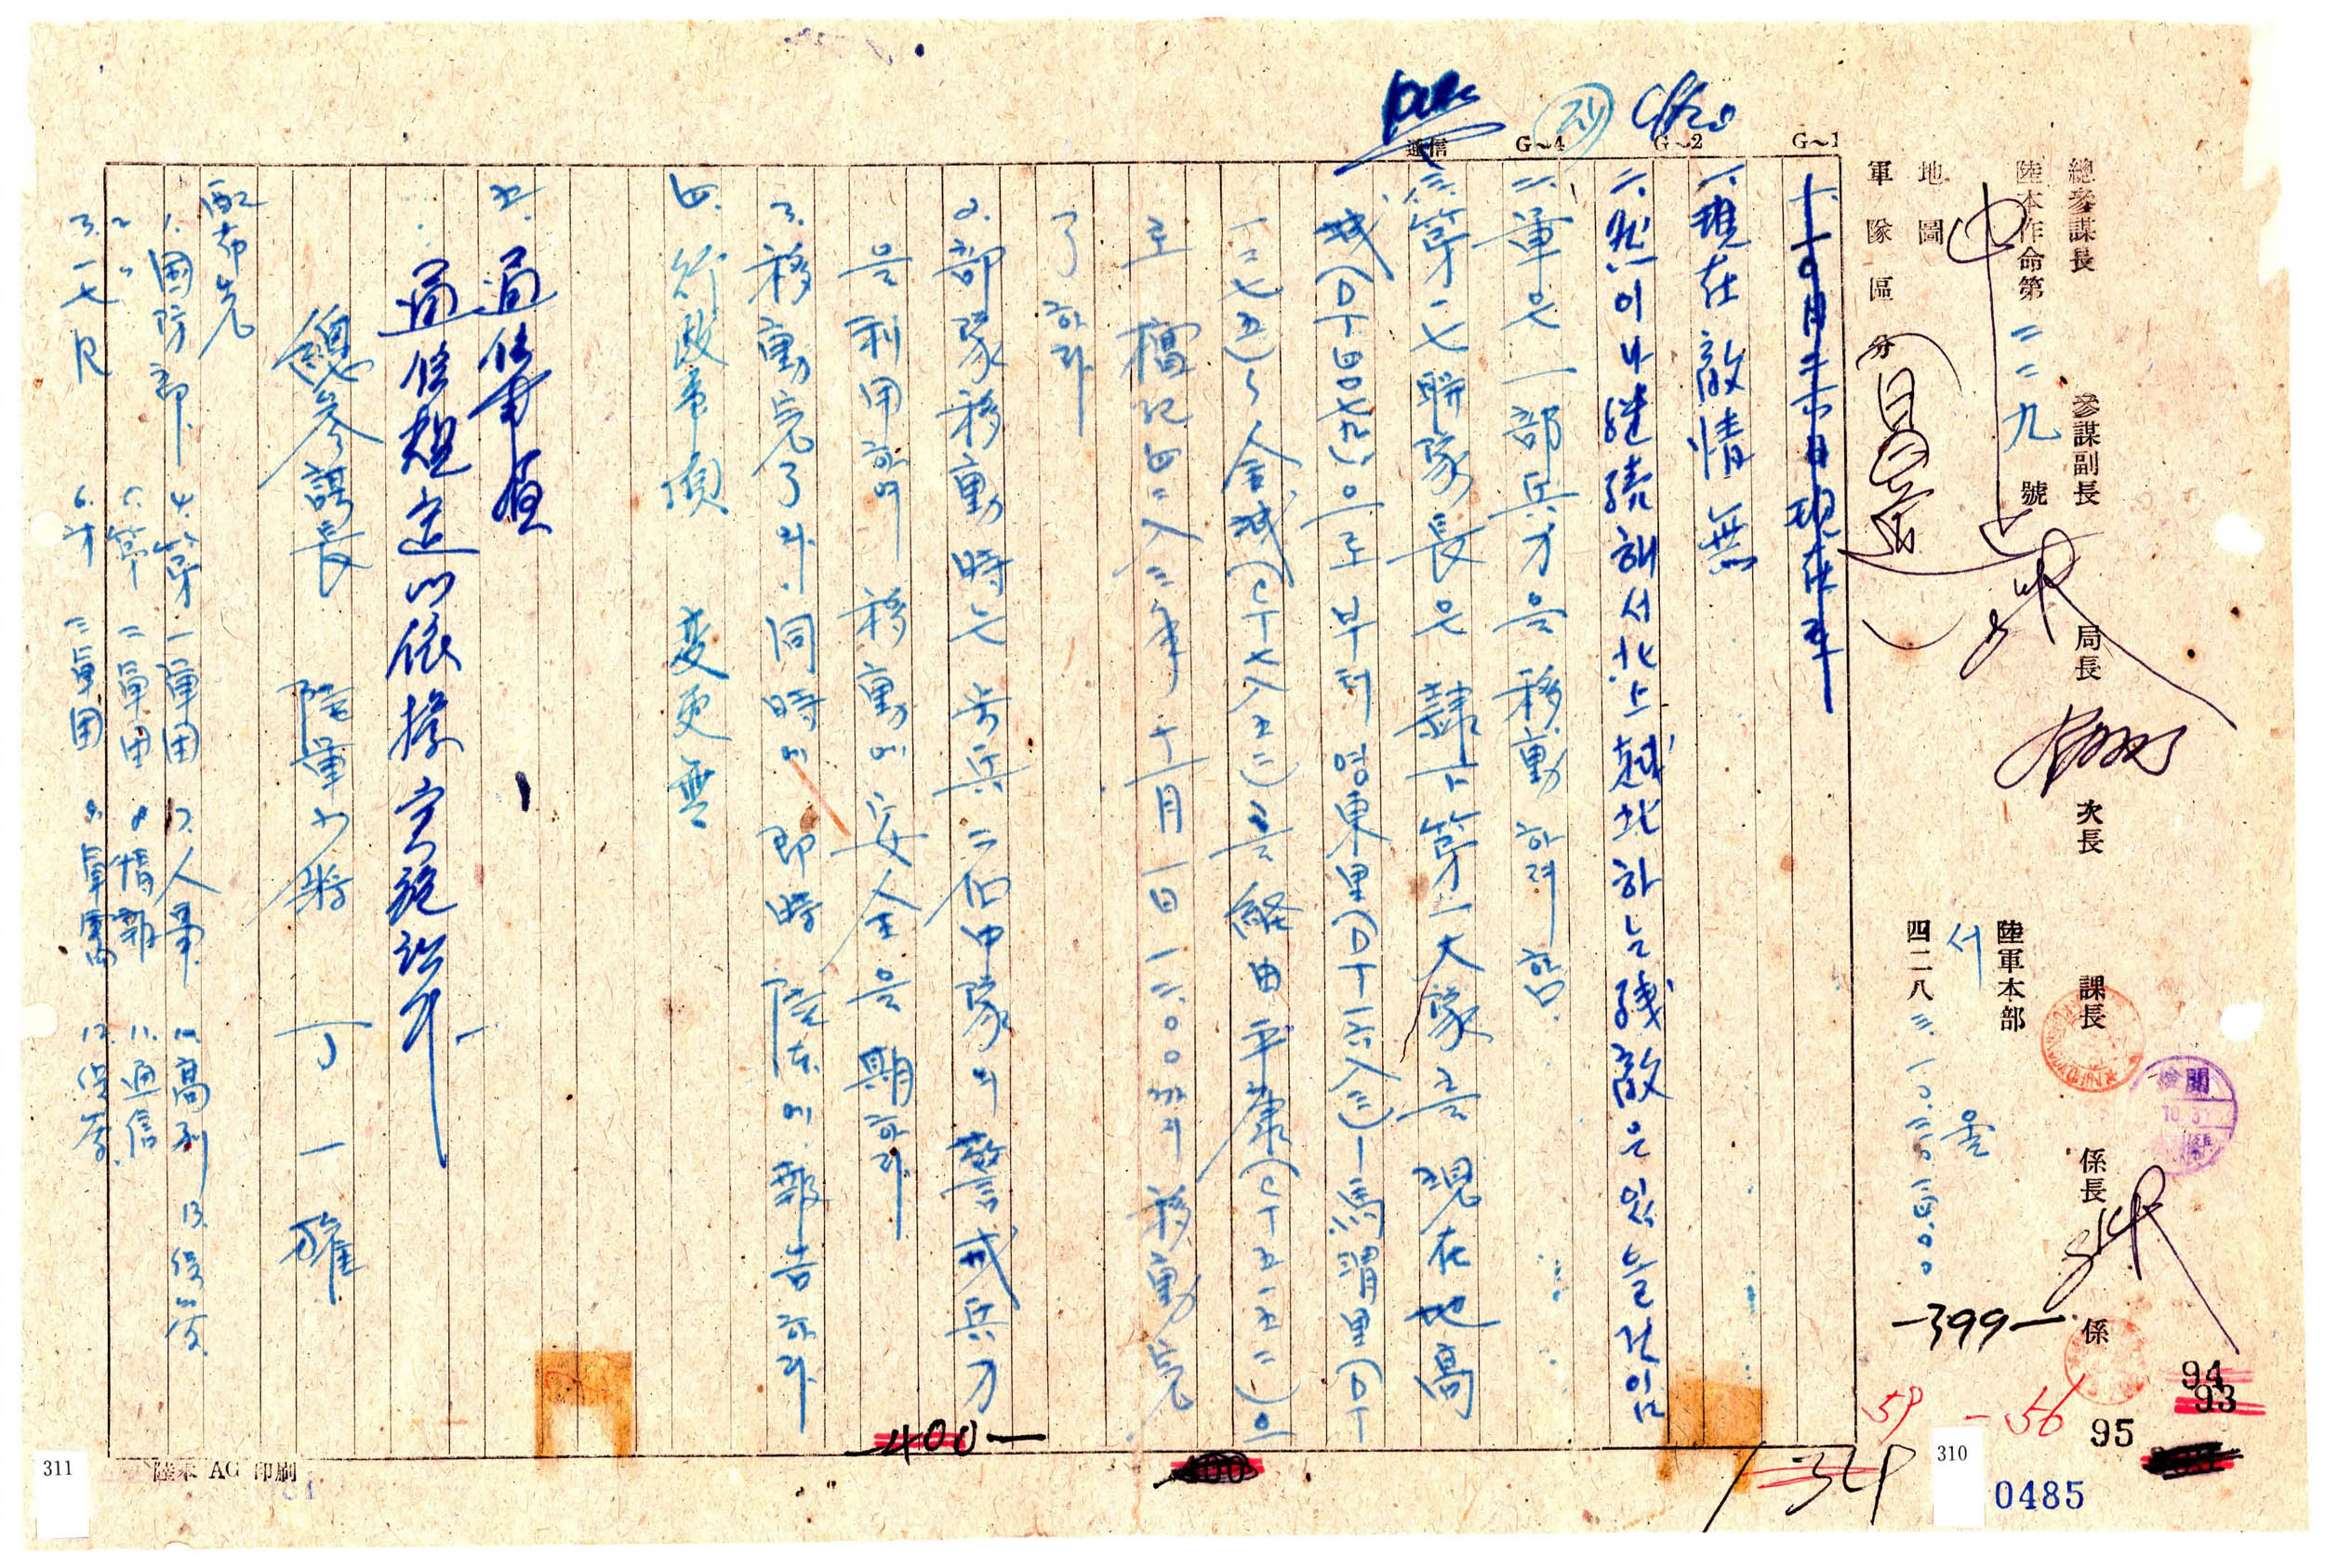 總參謀長 參謀副長 局長 次長 課長 係長 係
陸本作命第二二九號
陸軍本部
地圖
서울
四二八三.一〇.三〇.二四〇〇
軍隊區分
G~1
G~2
G~4
通信
一.現在敵情無
二.然이나 繼續해서 北上越北하는 殘敵은 있을 것임
二.軍은 一部兵力을 移動하려 함.
三.第一七聯隊長은 隸下 第一大隊를 現在地 高
으로부터 영東里
를 經由 平康(CT五一五二)으
로 檀紀四二八三年十一月一日一二.〇〇까지 移動完
了하라
2.部隊移動時는 步兵 二個中隊의 警戒兵力
을 利用하여 移動에 安全을 期하라
3.移動完了와 同時에 即時 陸本에 報告하라
四.行政事項 変更無
五.通信事項
通信規定에 依據 實施하라.
總參謀長 陸軍少將 丁一權
配布先
1.國防部 4.第一軍團 7.人事 10.高射 13.
2. 〃 5.第二軍團 8.情報 11.通信
3.一七R 6.第三軍團 9.軍需 12.
-399-
400-
134
59 - 56
94
93
95
310
311
0485
陸本 AG 印刷